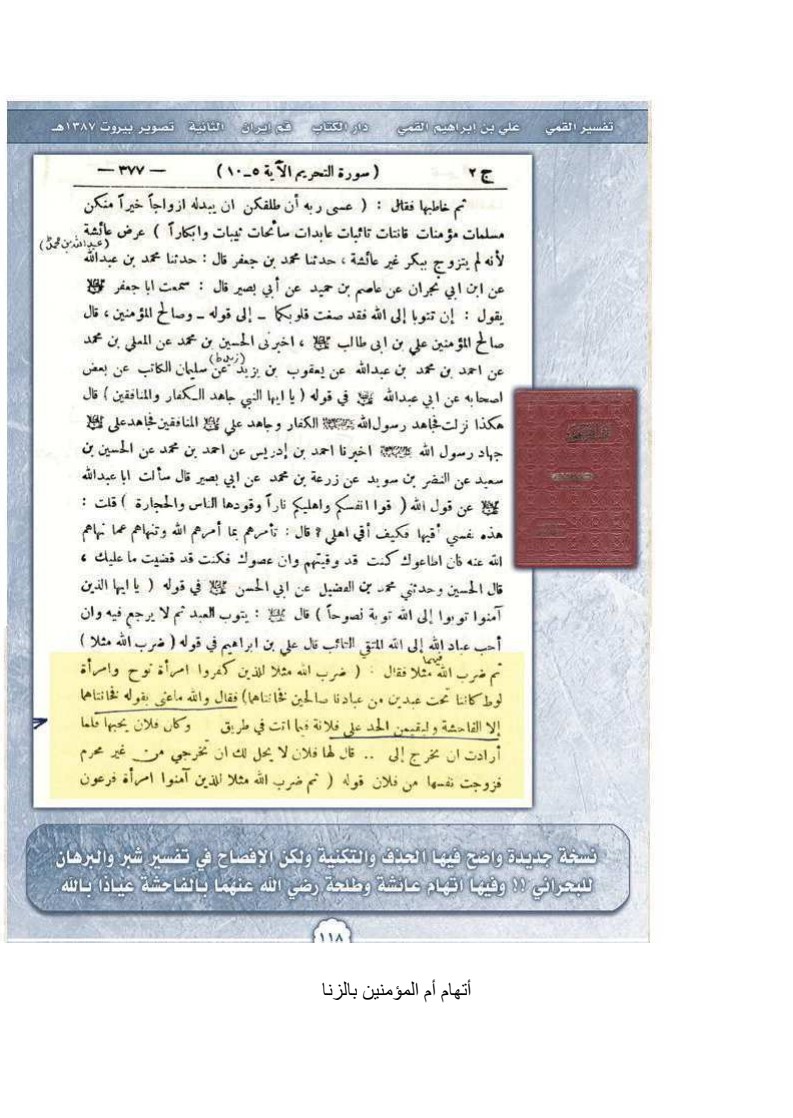 تفسير القمي علي بن إبراهيم القمي دار الكتاب قم إيران الثانية تصوير بيروت ١٣٨٧هـ
ج ٢ ( سورة التحريم الآية ٥-١٠ ) — ٣٧٧ —
ثم خاطبها فقال : ( عسى ربه أن طلقكن ان يبدله ازواجاً خيراً منكن
مسلمات مؤمنات قانتات تائبات عابدات سائحات ثيبات وابكاراً ) عرض عائشة
(عبدالله بن محمد ط)
لأنه لم يتزوج ببكر غير عائشة ، حدثنا محمد بن جعفر قال : حدثنا محمد بن عبدالله
عن ابن ابي نجران عن عاصم بن حميد عن أبي بصير قال : سمعت ابا جعفر عليه السلام
يقول : إن تتوبا إلى الله فقد صغت قلوبكما – إلى قوله – وصالح المؤمنين ، قال
صالح المؤمنين علي بن ابى طالب عليه السلام ، اخبرنى الحسين بن محمد عن المعلى بن محمد
(زيد ط)
عن احمد بن محمد بن عبدالله عن يعقوب بن يزيد عن سليمان الكاتب عن بعض
اصحابه عن ابي عبدالله عليه السلام في قوله ( يا ايها النبي جاهد الكفار والمنافقين ) قال
هكذا نزلت فجاهد رسول الله صلى الله عليه وآله الكفار وجاهد علي عليه السلام المنافقين فجاهد على عليه السلام
جهاد رسول الله صلى الله عليه وآله اخبرنا احمد بن إدريس عن احمد بن محمد عن الحسين بن
سعيد عن النضر بن سويد عن زرعة بن محمد عن ابي بصير قال سألت ابا عبدالله
عليه السلام عن قول الله ( قوا انفسكم واهليكم ناراً وقودها الناس والحجارة ) قلت :
هذه نفسي أقيها فكيف أقي اهلي ؟ قال : تأمرهم بما أمرهم الله وتنهاهم عما نهاهم
الله عنه فان اطاعوك كنت قد وقيتهم وان عصوك فكنت قد قضيت ما عليك ،
قال الحسين وحدثني محمد بن الفضيل عن ابي الحسن عليه السلام في قوله ( يا ايها الذين
آمنوا توبوا إلى الله توبة نصوحاً ) قال عليه السلام : يتوب العبد ثم لا يرجع فيه وان
أحب عباد الله إلى الله المتقي التائب قال علي بن ابراهيم في قوله ( ضرب الله مثلا )
فيهما
ثم ضرب الله مثلا فقال : ( ضرب الله مثلا للذين كفروا امرأة نوح وامرأة
لوط كانتا تحت عبدين من عبادنا صالحين فخانتاهما) فقال والله ماعنى بقوله فخانتاهما
إلا الفاحشة وليقيمن الحد على فلانة فيما اتت في طريق وكان فلان يحبها فلما
أرادت ان تخرج إلى .. قال لها فلان لا يحل لك ان تخرجي من غير محرم
فزوجت نفسها من فلان قوله ( ثم ضرب الله مثلا للذين آمنوا امرأة فرعون
نسخة جديدة واضح فيها الحذف والتكنية ولكن الإفصاح في تفسير شبر والبرهان
للبحراني !! وفيها اتهام عائشة وطلحة رضي الله عنهما بالفاحشة عياذا بالله
١١٨
أتهام أم المؤمنين بالزنا